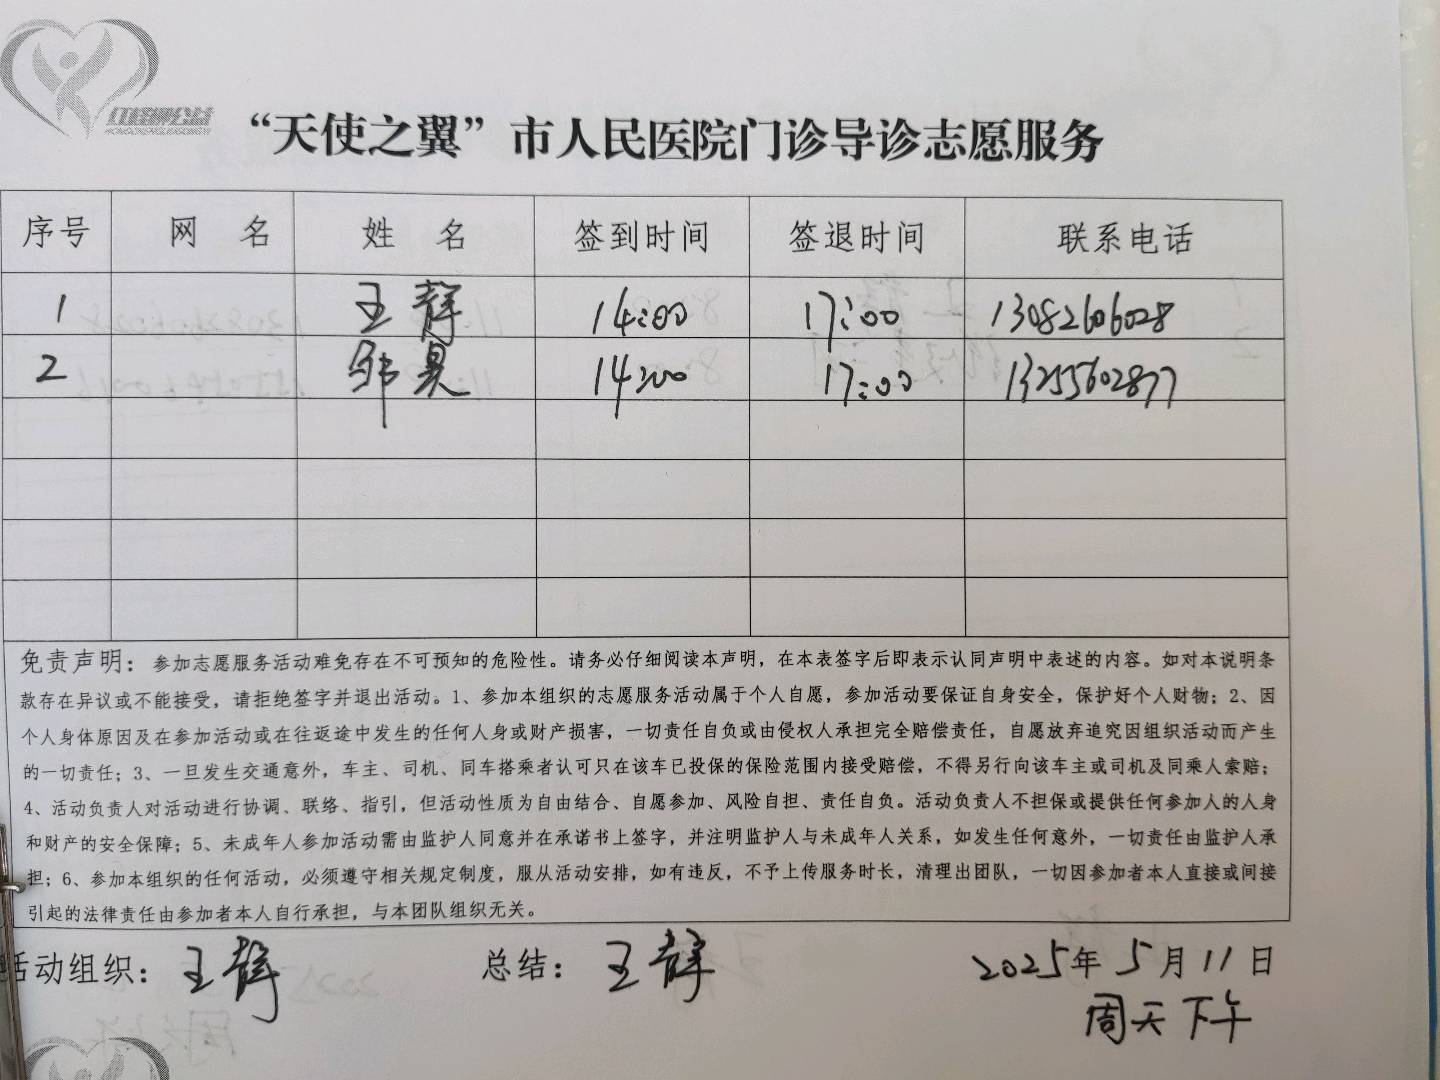 红蜂卿公益
“天使之翼”市人民医院门诊导诊志愿服务
序号 网 名 姓 名 签到时间 签退时间 联系电话
1 王静 14:00 17:00 13082606028
2 邹昊 14:00 17:00 13255602877
免责声明：参加志愿服务活动难免存在不可预知的危险性。请务必仔细阅读本声明，在本表签字后即表示认同声明中表述的内容。如对本说明条
款存在异议或不能接受，请拒绝签字并退出活动。1、参加本组织的志愿服务活动属于个人自愿，参加活动要保证自身安全，保护好个人财物；2、因
个人身体原因及在参加活动或在往返途中发生的任何人身或财产损害，一切责任自负或由侵权人承担完全赔偿责任，自愿放弃追究因组织活动而产生
的一切责任；3、一旦发生交通意外，车主、司机、同车搭乘者认可只在该车已投保的保险范围内接受赔偿，不得另行向该车主或司机及同乘人索赔；
4、活动负责人对活动进行协调、联络、指引，但活动性质为自由结合、自愿参加、风险自担、责任自负。活动负责人不担保或提供任何参加人的人身
和财产的安全保障；5、未成年人参加活动需由监护人同意并在承诺书上签字，并注明监护人与未成年人关系，如发生任何意外，一切责任由监护人承
担；6、参加本组织的任何活动，必须遵守相关规定制度，服从活动安排，如有违反，不予上传服务时长，清理出团队，一切因参加者本人直接或间接
引起的法律责任由参加者本人自行承担，与本团队组织无关。
活动组织：王静 总结：王静 2025年5月11日
周天下午